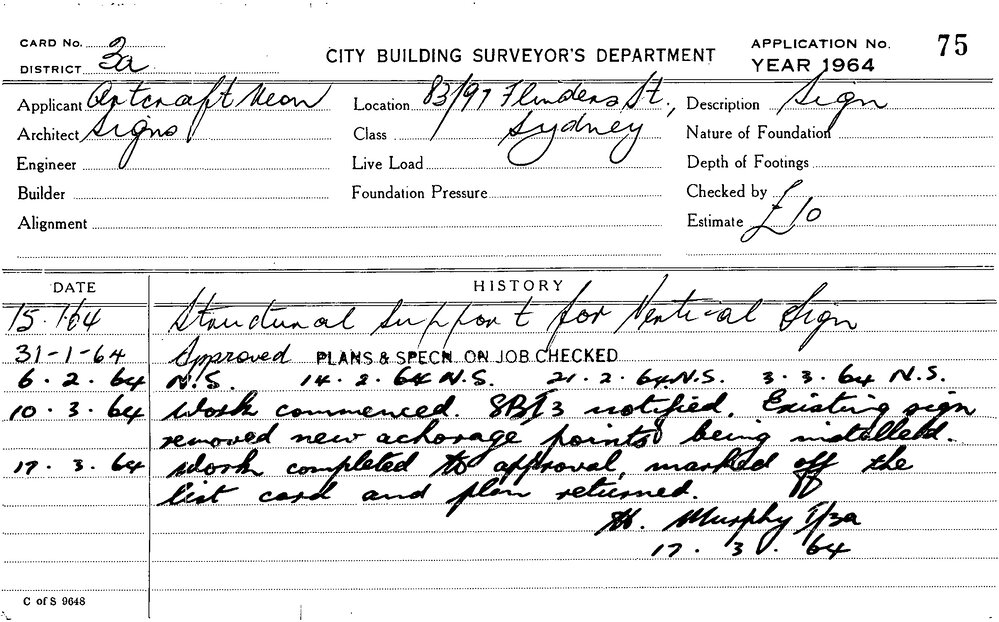 CARD No. 3a
DISTRICT
CITY BUILDING SURVEYOR'S DEPARTMENT
APPLICATION No. 75
YEAR 1964
Applicant Artcraft Neon
Location 83/97 Flinders St.,
Description Sign
Architect Signs
Class Sydney
Nature of Foundation
Engineer
Live Load
Depth of Footings
Builder
Foundation Pressure
Checked by
Alignment
Estimate £10
DATE HISTORY
15.1.64 Structural support for Vertical Sign
31-1-64 Approved PLANS & SPECN. ON JOB CHECKED
6.2.64 N.S. 14.2.64 N.S. 21.2.64 N.S. 3.3.64 N.S.
10.3.64 Work commenced. notified. Existing sign
removed new achorage points being installed.
17.3.64 Work completed to approval, marked off the
list card and plan returned.
H. Murphy I/3a
17.3.64
C of S 9648